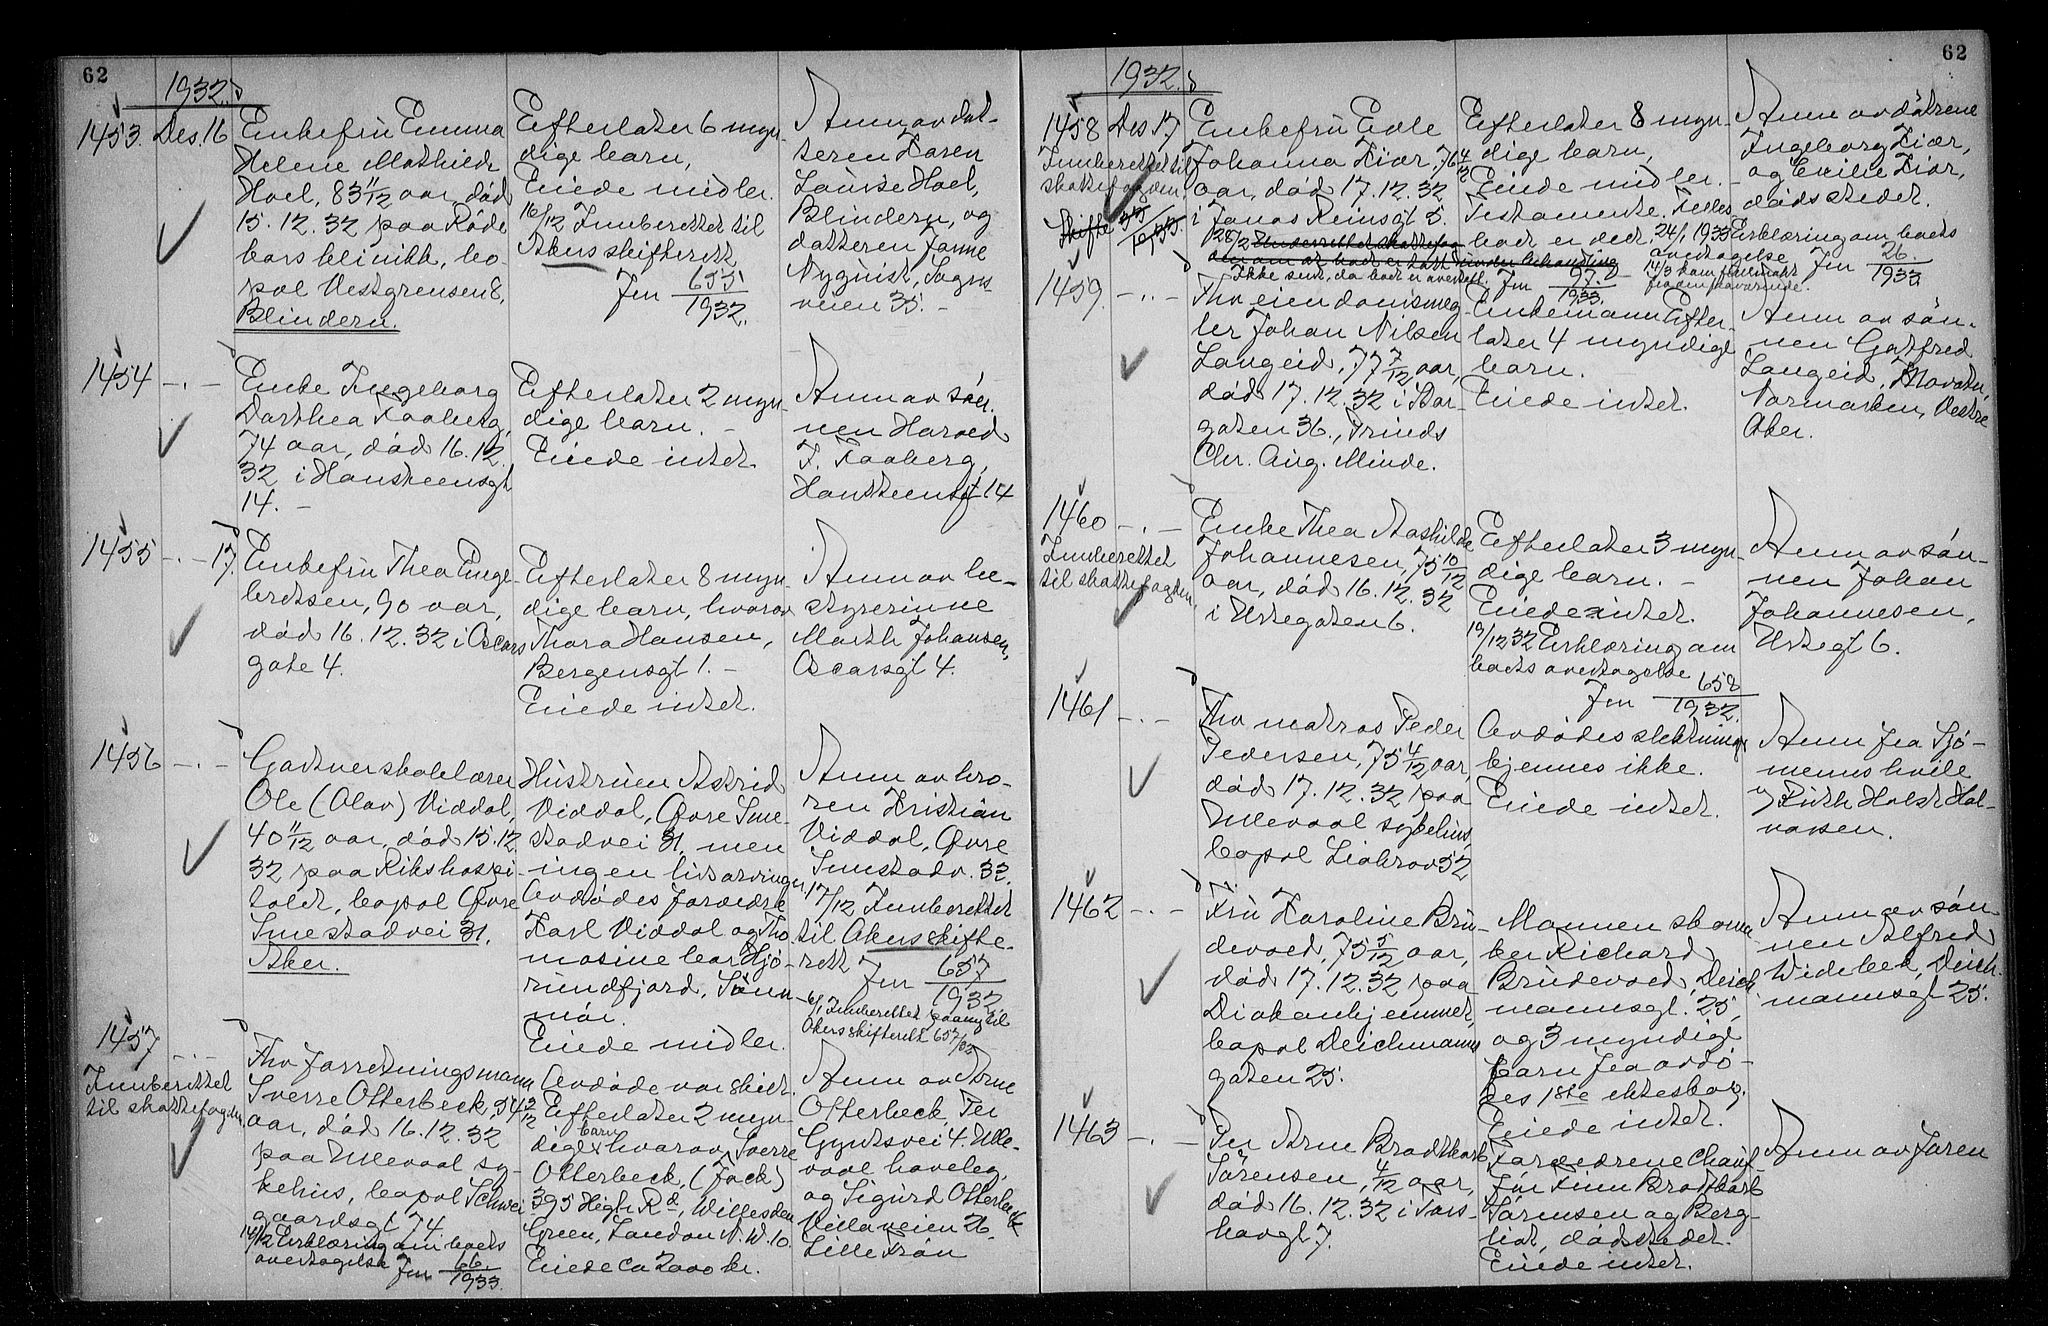 62
1932.
1453. Des. 16
Enkefru Emma
Helene Mathilde
Hoel, 83 11/12 aar, død
15.12.32 paa Røde
kors klinikk, bo-
pæl Vestgrensen 8,
Blindern.
Efterlater 6 myn-
dige barn,
Eiede midler.
16/12 Innberettet til
Akers skifterett
Jnr 655/1932.
Anm av dat-
teren Karen
Lauise Hoel,
Blindern, og
datteren Janne
Nyquist, Sogns-
veien 35.-
1454 -.-
Enke Ingeborg
Dorthea Faaberg,
74 aar, død 16.12.
32 i Hansteensgt
14.-
Efterlater 2 myn-
dige barn.-
Eiede intet.
Anm av søn-
nen Harald
F. Faaberg,
Hansteensgt 14
1455 -.- 17.
Enkefru Thea Enge-
bretsen, 90 aar,
død 16.12.32 i Oscars
gate 4.
Efterlater 8 myn-
dige barn, hvorav
Thora Hansen,
Bergensgt 1.-
Eiede intet.
Anm av be-
styrerinne
Marth Johansen,
Oscarsgt 4.
1456 -.-
Gartnerskolelærer
Ole (Olav) Viddal,
40 11/12 aar, død 15.12.
32 paa Rikshospi-
talet, bopæl Øvre
Smestadvei 31.
Aker.
Hustruen Astrid
Viddal, Øvre Sme-
stadvei 31, men
ingen livsarvinger.
Avdødes foreldre
Karl Viddal og Tho-
masine bor Hjø-
rundfjord, Sunn-
mør.
Eiede midler.
Anm av bro-
ren Kristian
Viddal, Øvre
Smestadv. 33.
17/12 Innberettet
til Akers skifte-
rett Jnr 657/1932
6/1 Innberettet paany til
Akers skifterett 657/32
1457 -.-
Innberettet
til skattefogden
Fhv forretningsmann
Sverre Otterbeck, 54 2/12
aar, død 16.12.32
paa Ullevaal sy-
kehus, bopæl Schwei
gaardsgt 74.
19/12 Erklæring om boets
overtagelse Jnr 66/1933.
Avdøde var skilt.
Efterlater 2 myn-
dige barn hvorav Sverre
Otterbeck, (Jack)
395 High Rd, Willesden
Green, London N.W.10.
Eiede ca 2000 kr.
Anm av Arne
Otterbeck, Per
Gyntsvei 4. Ulle-
vaal haveby,
og Sigurd Otterbeck
Villaveien 26.
Lille Frøn
62
1932.
1458 Des 17
Innberettet til
skattefogden.
Enkefru Evle
Johanna Kiær, 76 4/12
aar, død 17.12.32
i Jonas Reinsgt 5.
Efterlater 8 myn-
dige barn,
Eiede midler.-
Testamente. Felles-
boet er delt. 24/1 1933 Erklæring om boets
overtagelse Jnr 26/1933
28/2 Underrettet skattefog
den om at boet er tatt under behandling
Ikke sent, da boet er overtatt. Jnr 97/1933.
Anm av døtrene
Ingeborg Kiær,
og Cecilie Kiær,
dødsstedet.
1459 -.-
Fhv eiendomsmeg-
ler Johan Nilsen
Langeid, 77 7/12 aar,
død 17.12.32 i Stor-
gaten 36., Prinds
Chr. Aug. Minde.
Enkemann Efter-
later 4 myndige
barn.
Eiede intet.
Anm av søn-
nen Gotfred
Langeid,
Normarken, Vestre
Aker.
1460 -.-
Innberettet
til skattefogden,
Enke Thea Mathilde
Johannesen, 75 10/12
aar, død 16.12.32
i Urtegaten 6.
Efterlater 3 myn-
dige barn.-
Eiede intet.
19/12 32 Erklæring om
boets overtagelse
Jnr 658/1932.
Anm av søn-
nen Johan
Johannesen,
Urtegt 6.
1461 -.-
Fhv matros Peder
Pedersen, 75 4/12 aar,
død 17.12.32 paa
Ullevaal sykehus,
bopæl Liabrov 52
Avdødes slektninger
kjennes ikke.
Eiede intet.
Anm fra Sjø-
menns hvile
v/ Ruth Holst Hal-
vorsen.
1462 -.-
Fru Karoline Bru-
devold, 75 5/12 aar,
død 17.12.32 paa
Diakonhjemmet,
bopæl Deichmanns
gaten 25.
Mannen skoma-
ker Richard
Brudevold, Deich
mannsgt. 25,
og 3 myndige
barn fra avdø-
des 1ste ekteskap.
Eiede intet.
Anm av søn-
nen Alfred
Wideberk, Deich-
mannsgt 25.
1463 -.-
Per Arne Bradtkorb
Sørensen, 4/12 aar,
død 16.12.32 i Tors-
hovgt 7.
Foreldrene chauf-
før Finn Bradtkorb
Sørensen og Berg-
liot, dødsstedet.
Eiede intet.
Anm av faren